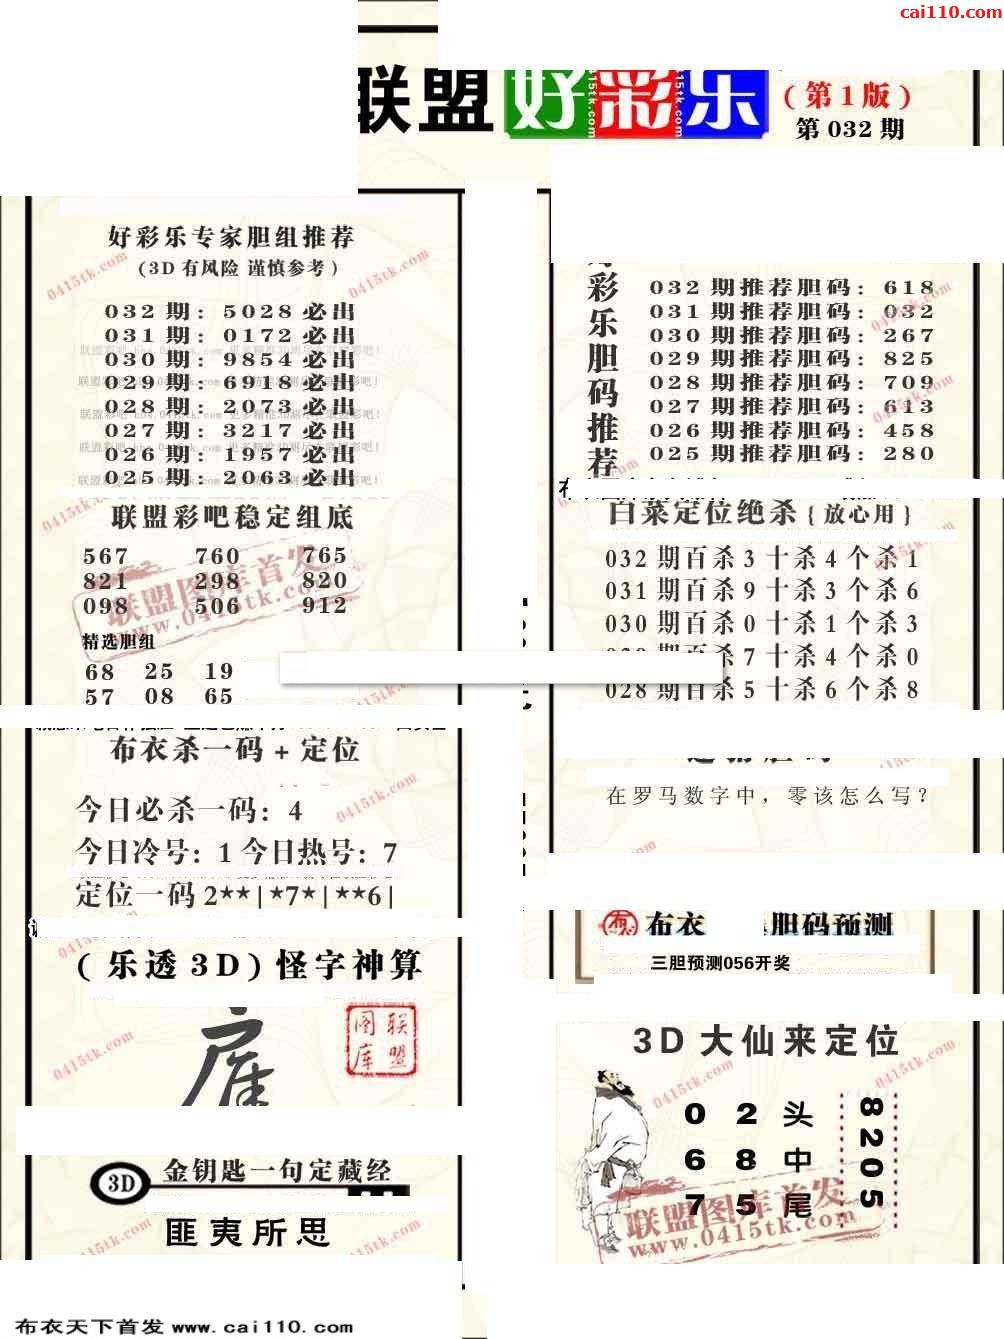 cai110.com
联盟 好彩乐
(第1版)
第 032 期
好彩乐专家胆组推荐
(3D 有风险 谨慎参考)
032 期: 5028 必出
031 期: 0172 必出
030 期: 9854 必出
029 期: 6918 必出
028 期: 2073 必出
027 期: 3217 必出
026 期: 1957 必出
025 期: 2063 必出
联盟彩吧稳定组底
567 760 765
821 298 820
098 506 912
精选胆组
68 25 19
57 08 65
布衣杀一码 + 定位
今日必杀一码: 4
今日冷号: 1 今日热号: 7
定位一码 2**|*7*|**6|
(乐透 3D) 怪字神算
联盟图库
3D
金钥匙一句定藏经
匪夷所思
彩乐胆码推荐
032 期推荐胆码: 618
031 期推荐胆码: 032
030 期推荐胆码: 267
029 期推荐胆码: 825
028 期推荐胆码: 709
027 期推荐胆码: 613
026 期推荐胆码: 458
025 期推荐胆码: 280
白菜定位绝杀 { 放心用 }
032 期百杀 3 十杀 4 个杀 1
031 期百杀 9 十杀 3 个杀 6
030 期百杀 0 十杀 1 个杀 3
杀 7 十杀 4 个杀 0
028 期百杀 5 十杀 6 个杀 8
在罗马数字中，零该怎么写？
布衣 胆码预测
三胆预测056开奖
3D 大仙来定位
0 2 头
6 8 中
7 5 尾
8205
联盟图库首发
www.0415tk.com
布衣天下首发 www.cai110.com